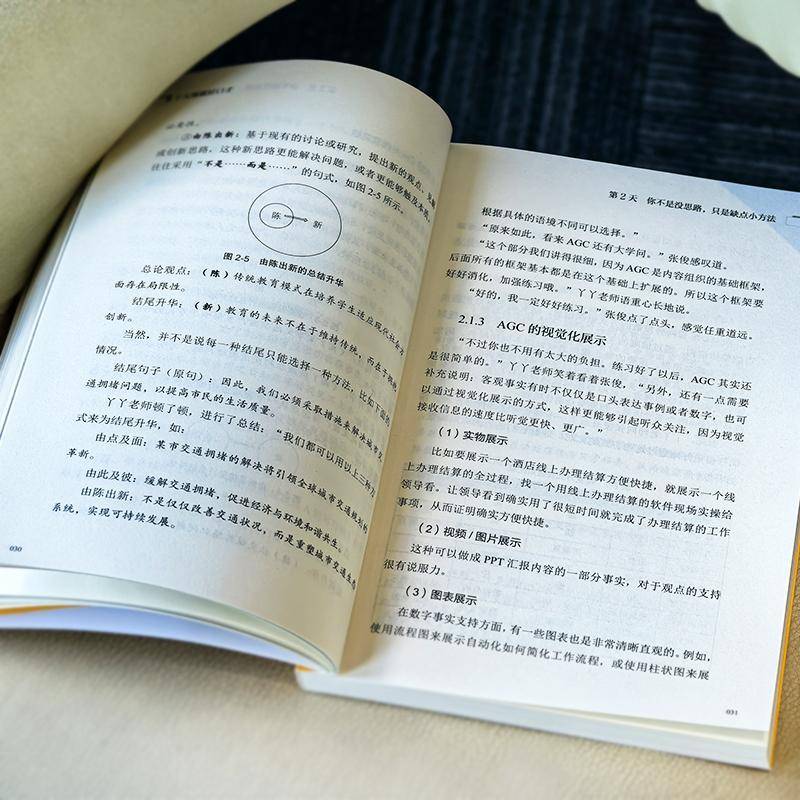 ③由陈出新：基于现有的讨论或研究，提出新的观点、见解
或创新思路，这种新思路更能解决问题，或者更能够触及本质，
往往采用“不是……而是……”的句式，如图2-5所示。
陈
新
图 2-5 由陈出新的总结升华
总论观点：（陈）传统教育模式在培养学生适应现代社会方
面存在局限性。
结尾升华：（新）教育的未来不在于维持传统，而在于拥抱
创新。
当然，并不是说每一种结尾只能选择一种方法，比如下面的
情况。
结尾句子（原句）：因此，我们必须采取措施来解决城市交
通拥堵问题，以提高市民的生活质量。
丫丫老师顿了顿，进行了总结：“我们都可以用以上三种方
式来为结尾升华，如：
由点及面：某市交通拥堵的解决将引领全球城市交通规划的
革新。
由此及彼：缓解交通拥堵，促进经济与环境和谐共生。
由陈出新：不是仅仅改善交通状况，而是重塑城市交通生态
系统，实现可持续发展。
030
第 2 天 你不是没思路，只是缺点小方法
根据具体的语境不同可以选择。”
“原来如此，看来 AGC 还有大学问。”张俊感叹道。
“这个部分我们讲得很细，因为 AGC 是内容组织的基础框架，
后面所有的框架基本都是在这个基础上扩展的。所以这个框架要
好好消化，加强练习哦。”丫丫老师语重心长地说。
“好的，我一定好好练习。”张俊点了点头，感觉任重道远。
2.1.3 AGC 的视觉化展示
“不过你也不用有太大的负担。练习好了以后，AGC 其实还
是很简单的。”丫丫老师笑着看着张俊，“另外，还有一点需要
补充说明：客观事实有时不仅仅是口头表达事例或者数字，也可
以通过视觉化展示的方式，这样更能够引起听众关注，因为视觉
接收信息的速度比听觉更快、更广。”
（1）实物展示
比如要展示一个酒店线上办理结算方便快捷，就展示一个线
上办理结算的全过程，找一个用线上办理结算的软件现场实操给
领导看。让领导看到确实用了很短时间就完成了办理结算的工作
事项，从而证明确实方便快捷。
（2）视频 / 图片展示
这种可以做成 PPT 汇报内容的一部分事实，对于观点的支持
很有说服力。
（3）图表展示
在数字事实支持方面，有一些图表也是非常清晰直观的。例如，
使用流程图来展示自动化如何简化工作流程，或使用柱状图来展
031